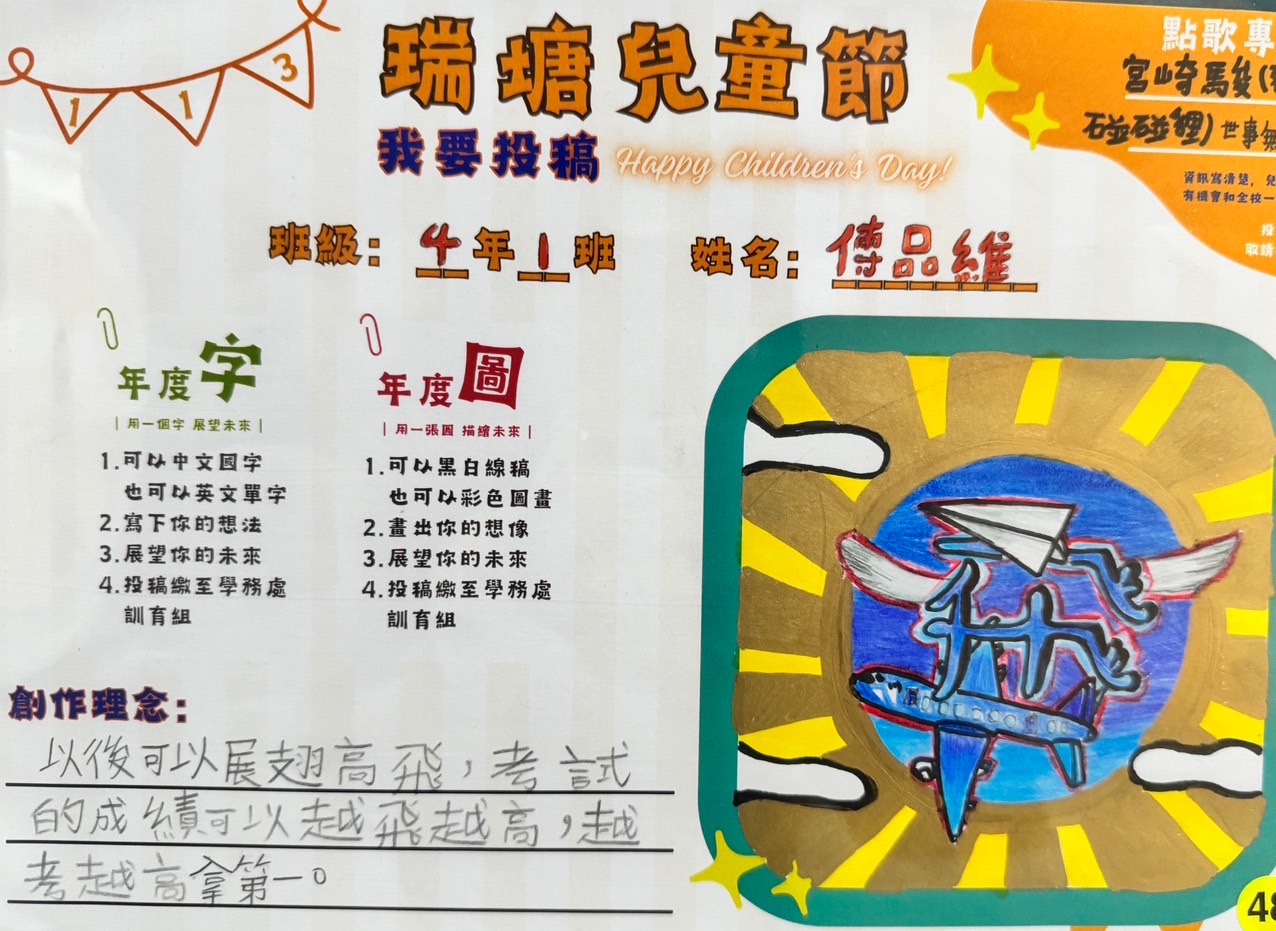 1 1 3
瑞塘兒童節
我要投稿 Happy Children's Day!
點歌專
宮崎駿
碰碰狸) 世事
資訊寫清楚，兒
有機會和全校一
投
敬請
班級：4年1班 姓名：傅品維
年度字
| 用一個字 展望未來 |
1.可以中文國字
也可以英文單字
2.寫下你的想法
3.展望你的未來
4.投稿繳至學務處
訓育組
年度圖
| 用一張圖 描繪未來 |
1.可以黑白線稿
也可以彩色圖畫
2.畫出你的想像
3.展望你的未來
4.投稿繳至學務處
訓育組
創作理念：
以後可以展翅高飛，考試
的成績可以越飛越高，越
考越高拿第一。
飛
48